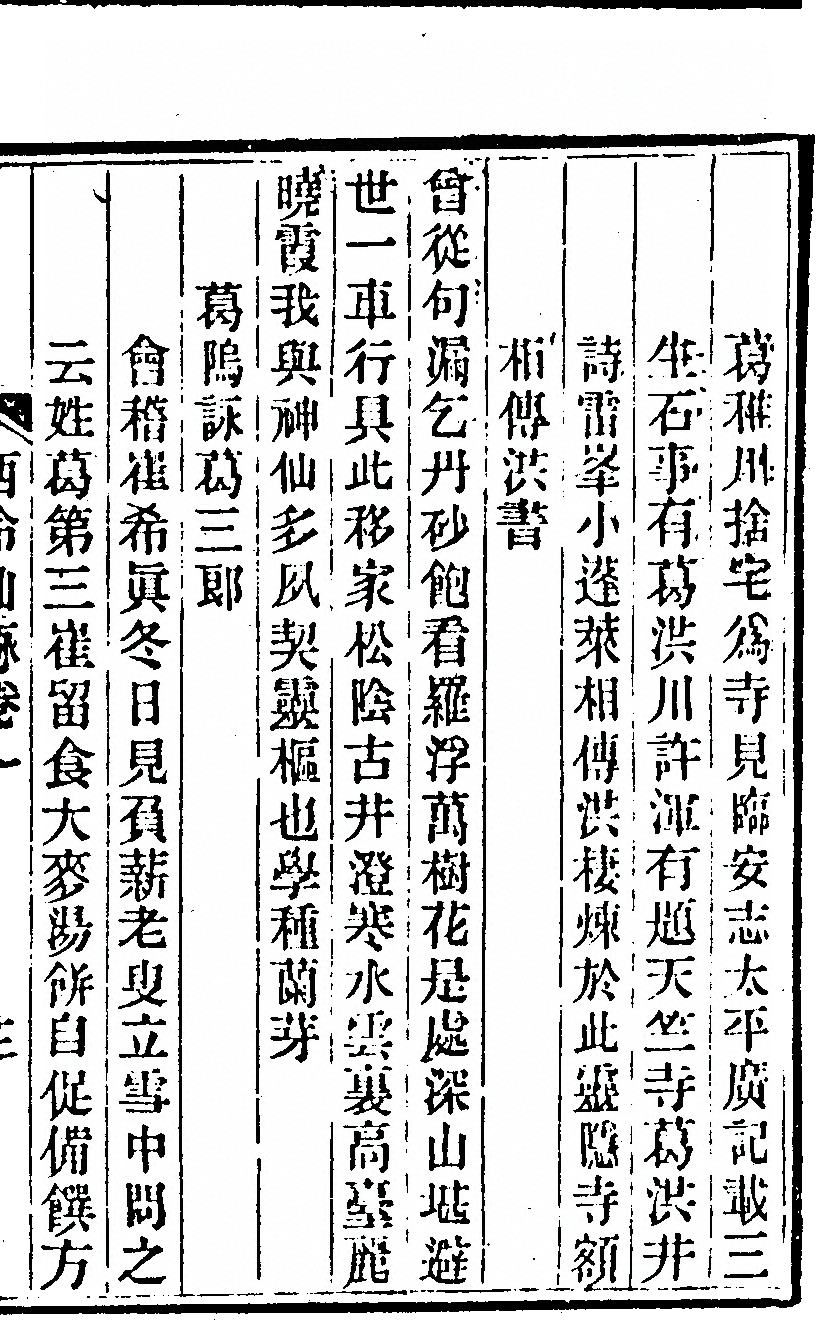 葛稚川捨宅爲寺見臨安志太平廣記載三
生石事有葛洪川許渾有題天竺寺葛洪井
詩雷峯小蓬萊相傳洪棲煉於此靈隱寺額
相傳洪書
曾從句漏乞丹砂飽看羅浮萬樹花是處深山堪避
世一車行具此移家松陰古井澄寒水雲裏高臺麗
曉霞我與神仙多夙契靈樞也學種蘭芽
葛隝詠葛三郎
會稽崔希眞冬日見負薪老叟立雪中問之
云姓葛第三崔留食大麥湯餅自促備饌方
西泠仙詠卷一 三